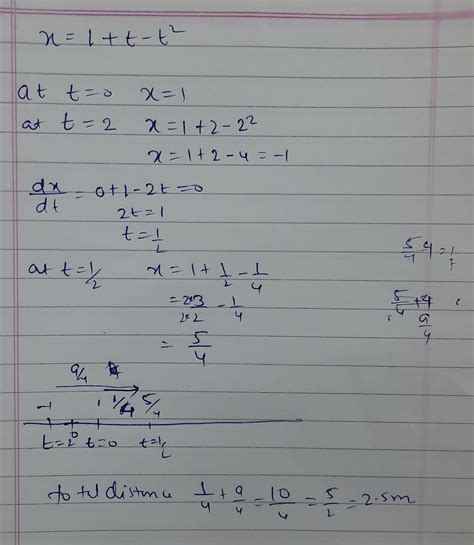 x = 1 + t - t²
at t = 0   x = 1
at t = 2   x = 1 + 2 - 2²
x = 1 + 2 - 4 = -1
dx/dt = 0 + 1 - 2t = 0
2t = 1
t = 1/2
at t = 1/2   x = 1 + 1/2 - 1/4
= 2*3/2*2 - 1/4
= 5/4
5/4 + 4
9/4
9/4
-1   1   1/4   5/4
t=2   0   t=0   t=1/2
total distance 1/4 + 9/4 = 10/4 = 5/2 = 2.5m